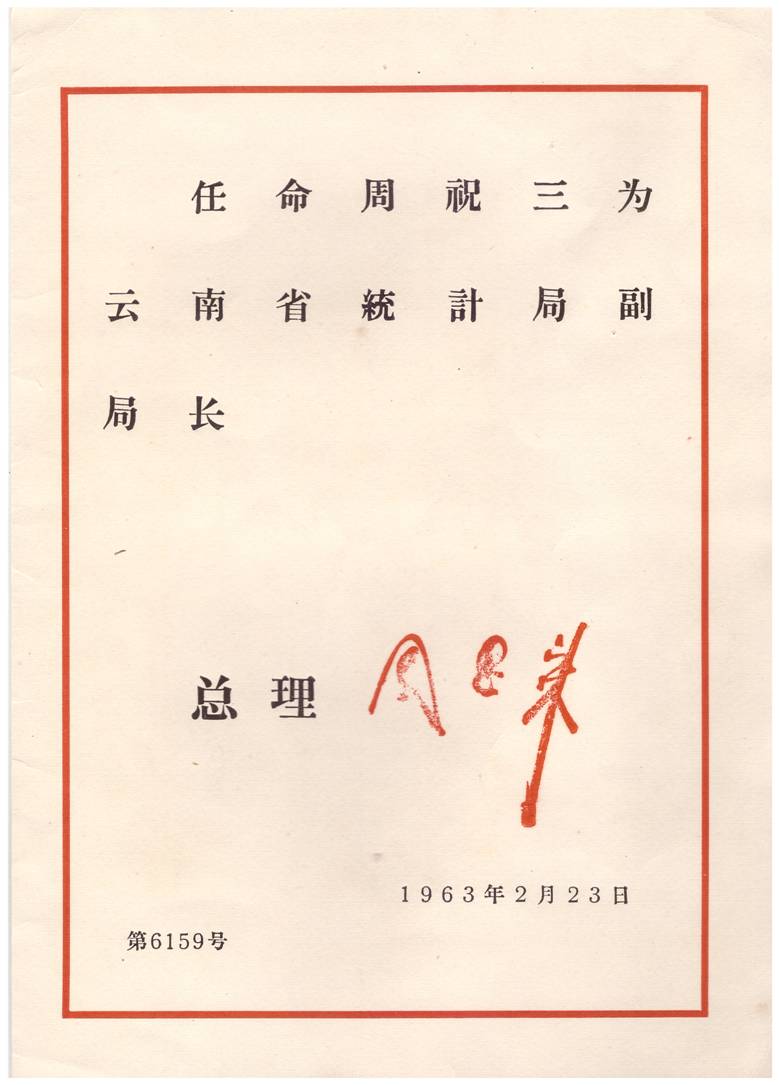 任命周祝三为
云南省統計局副
局长
总理 周恩来
1963年2月23日
第6159号